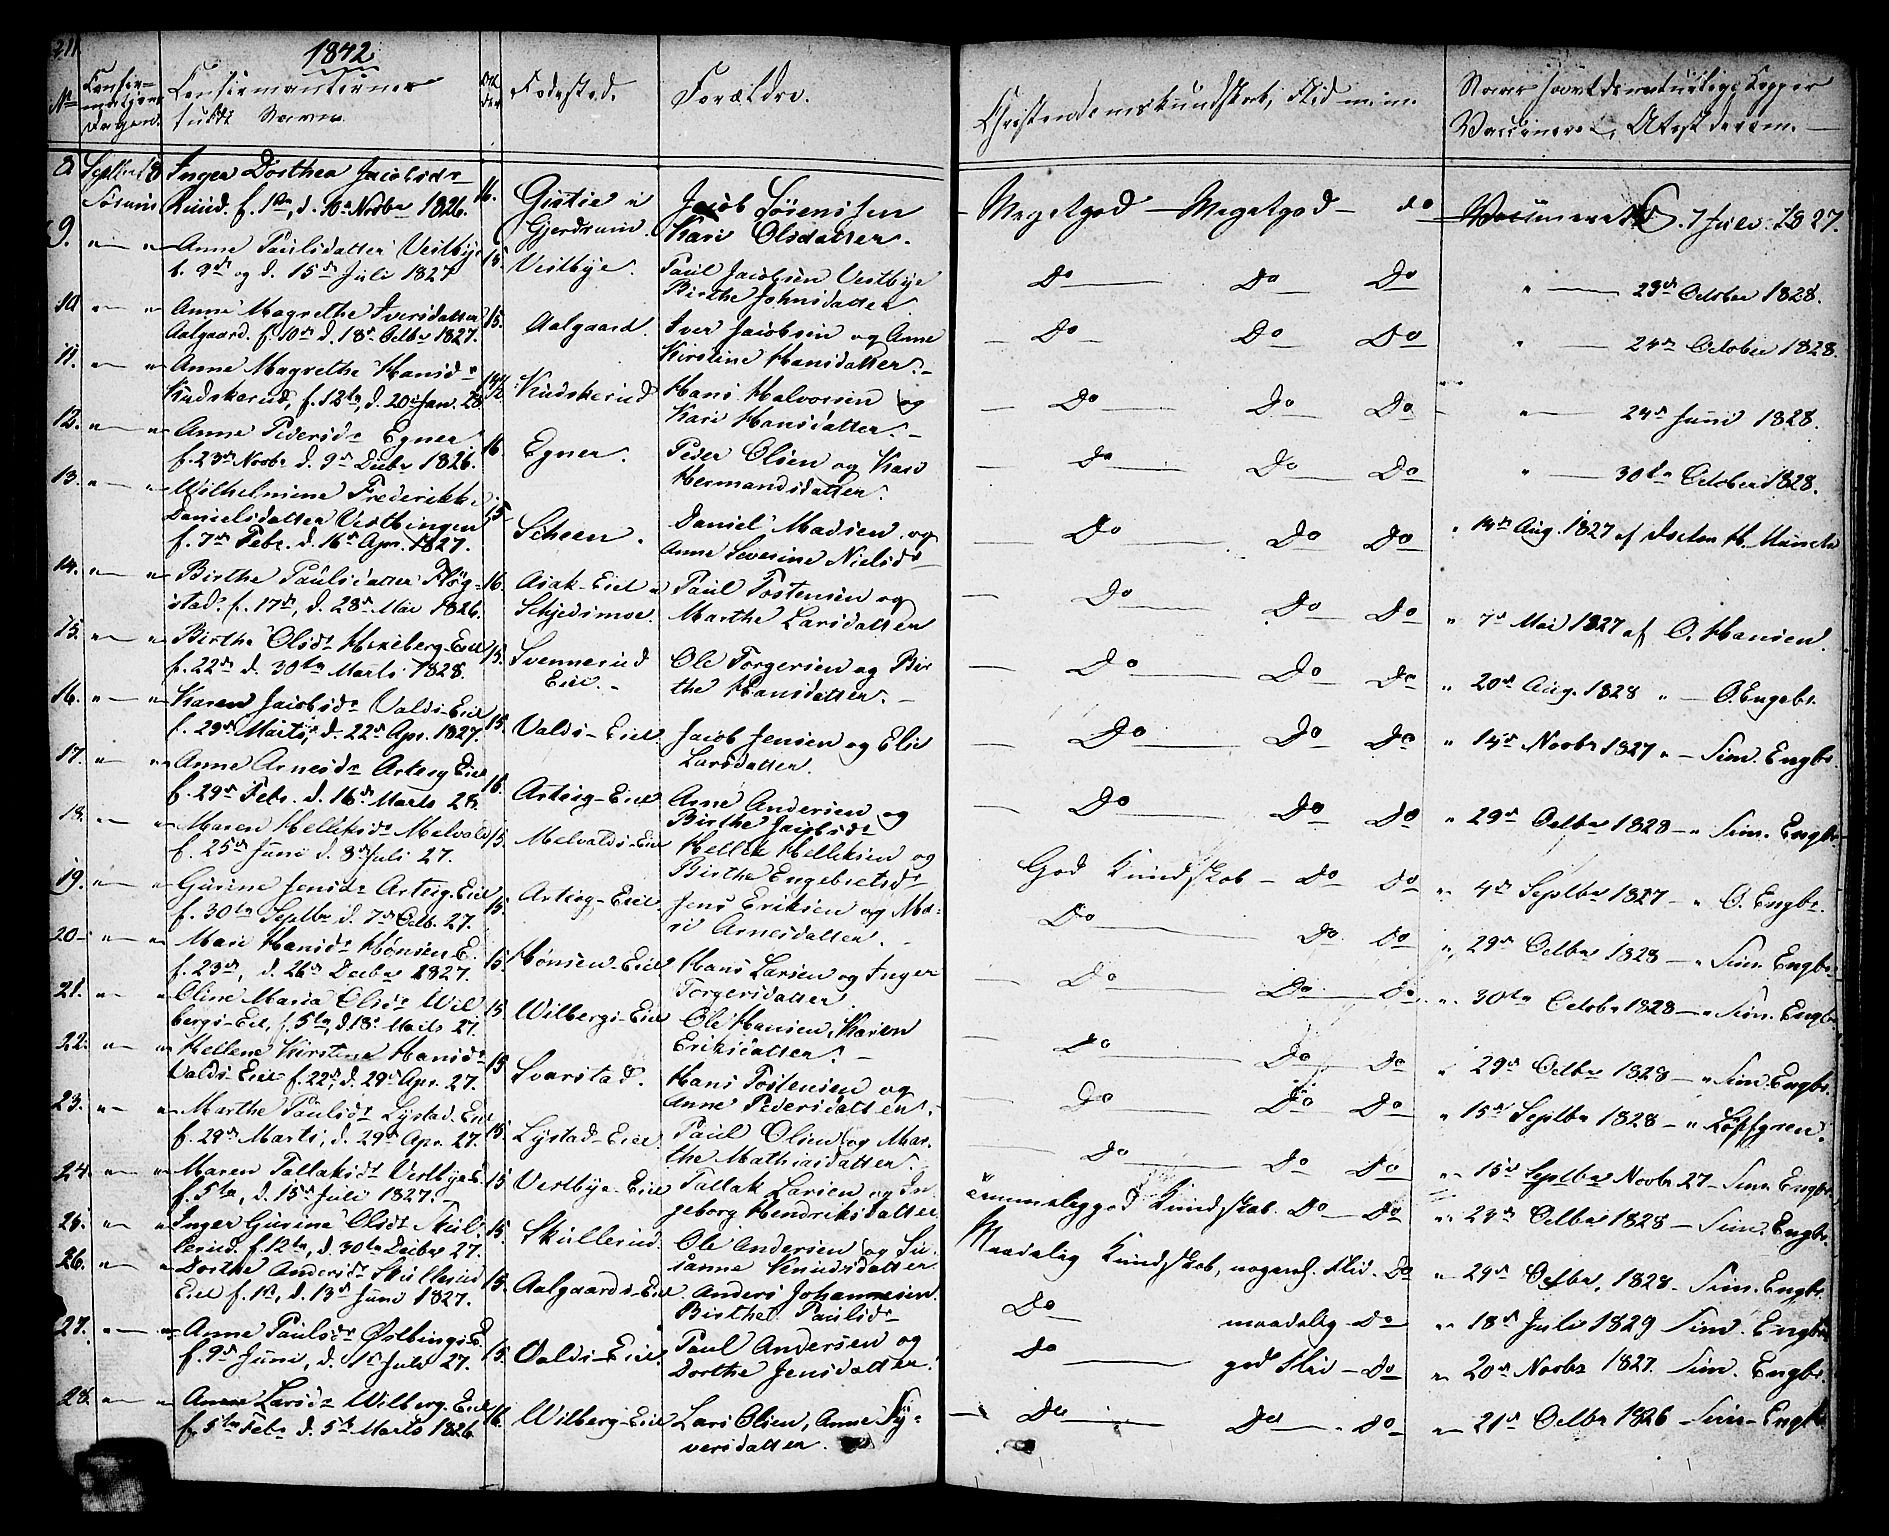 1842
No Confir-mationsdagen. Confirmanternes fulde Navne. Alder Fødested. Forældre. Christendomskundskab, Flid m.m. Naar havt de naturlige Kopper Vaccineret, Attest derom.
8 Septbr 18 Sørum Inger Dorthea Jacobsdr Ruud. f. 1ste, d. 10de Novbr 1826. 16. Gjerdrum. Jacob Sørenssen Karie Olsdatter. Megetgod — Megetgod — do Vaccineret 7 Juli 1827.
9. " " Anne Paulsdatter Vestbye f. 9de og d. 15de Juli 1827 15. Vestbye. Paul Jacobsen Vestbye Birthe Johnsdatter. Do Do Do " 23de October 1828.
10 " " Anne Magrethe Iversdatter Aalgaard. f. 10de d. 18de Octbr 1827. 15. Aalgaard. Iver Jacobsen og Anne Kirstine Hansdatter. Do Do Do " 24de October 1828.
11. " " Anne Magrethe Hansdr Kudskerud, f. 12te, d. 20de Jan. 28 14½ Kudskerud Hans Halvorsen og Kari Hansdatter. Do Do Do " 24de Juni 1828.
12. " " Anne Pedersdr Egner f. 23de Novbr d. 9de Decbr 1826. 16 Egner. Peder Olsen og Kari Hermandsdatter. Do Do Do " 30te October 1828.
13. " " Wilhelmine Frederikke Danielsdatter Vestbingen f. 7de Febr. d. 16de Apr. 1827. 15 Scheen. Daniel Madsen og Anne Severine Nielsdr Do Do Do " 14de Aug. 1827 af Doctor H. Munch
14. " " Birthe Paulsdatter Fløgstad. f. 17de, d. 28de Mai 1826. 16. Asak-Eiet Schjedsmoe. Paul Tostensen og Marthe Larsdatter Do Do Do " 7de Mai 1827 af O. Hansen.
15. " " Birthe Olsdr Hexeberg-Eiet f. 22de d. 30te Marts 1828. 15. Svennerud Eiet. Ole Torgersen og Birthe Hansdatter. Do Do Do " 20de Aug. 1828 " O. Engebr.
16. " " Karen Jacobsdr Valds-Eiet f. 29de Marts, d. 22de Apr. 1827. 15. Valds-Eiet Jacob Jensen og Elie Larsdatter. Do Do Do " 14de Novbr 1827 " Sim. Engbr.
17. " " Anne Arnesdr Arteig Eiet f. 29de Febr. d. 16de Marts 28. 16. Arteig-Eiet Arne Andersen og Birthe Jacobsdr Do Do Do " 29de Octbr 1828 " Sim. Engbr.
18. " " Maren Helliksdr Melvald f. 25de Juni d. 8de Juli 27. 15. Melvalds-Eiet Hellik Helliksen og Birthe Engebretsdr God Kundskab — Do Do " 4de Septbr 1827 " O. Engbr.
19. " " Gurine Jensdr Arteig-Eiet f. 30te Septbr d. 7de Octb. 27. 15. Arteig-Eiet Jens Eriksen og Mari Arnesdatter. Do Do Do " 29de Octbr 1828 " Sim. Engbr.
20 " " Mari Hansdr Hønsen E. f. 23de, d. 26de Decbr 1827. 15. Hønsen-Eiet Hans Larsen og Inger Torgersdatter. Do Do Do " 30te Octobr 1828 " Sim. Engbr
21. " " Oline Maria Olsdr Wilbergs-Eiet, f. 5te, d. 18de Marts 27. 15 Wilbergs-Eiet Ole Hansen, Karen Eriksdatter. Do Do Do " 29de Octbr 1828 " Sim. Engbr.
22. " " Hellene Kirstine Hansdr Valds-Eiet f. 22de, d. 29de Apr. 27. 15 Svarstad. Hans Tostensen og Anne Pedersdatter. Do Do Do " 15de Septbr 1828 " Løffgren.
23. " " Marthe Paulsdr Lystad. Eiet f. 29de Marts, d. 29de Apr. 27. 15. Lystad-Eiet Paul Olsen og Marthe Mathiasdatter. Do Do Do " 15de Septbr Novbr 27 Sim. Engbr
24. " " Maren Tallaksdr Vestbye E. f. 5te, d. 15de Juli 1827. 15 Vestbye-Eiet Tallak Larsen og Ingeborg Hendriksdatter Temmeliggod Kundskab. Do Do " 23de Octbr 1828 Sim. Engbr.
25. " " Inger Gurine Olsdr Skullerud. f. 12te, d. 30te Decbr 27. 15. Skullerud. Ole Andersen og Susanne Knudsdatter Maadelig Kundskab, nogenl. Flid. Do " 29de Octbr. 1828 Sim. Engbr.
26. " " Dorthe Andersdr Skullerud Eiet f. 1ste, d. 13de Juni 1827. 15. Aalgaards-Eiet Anders Johannesen Birthe Paulsdr Do maadelig Do " 18de Juli 1829 Sim. Engbr
27. " " Anne Paulsdr Østbings E. f. 9de Juni, d. 1ste Juli 27. 15. Valds-Eiet. Paul Andersen og Dorthe Jensdatter. Do god Flid Do " 20de Novbr 1827. Sim. Engbr.
28. " " Anne Larsdr Wilberg. Eiet f. 5te Febr d. 5te Marts 1826 16. Wilberg-Eiet Lars Olsen, Anne Syversdatter. Do Do Do " 21de Octbr 1826 Sim. Engbr